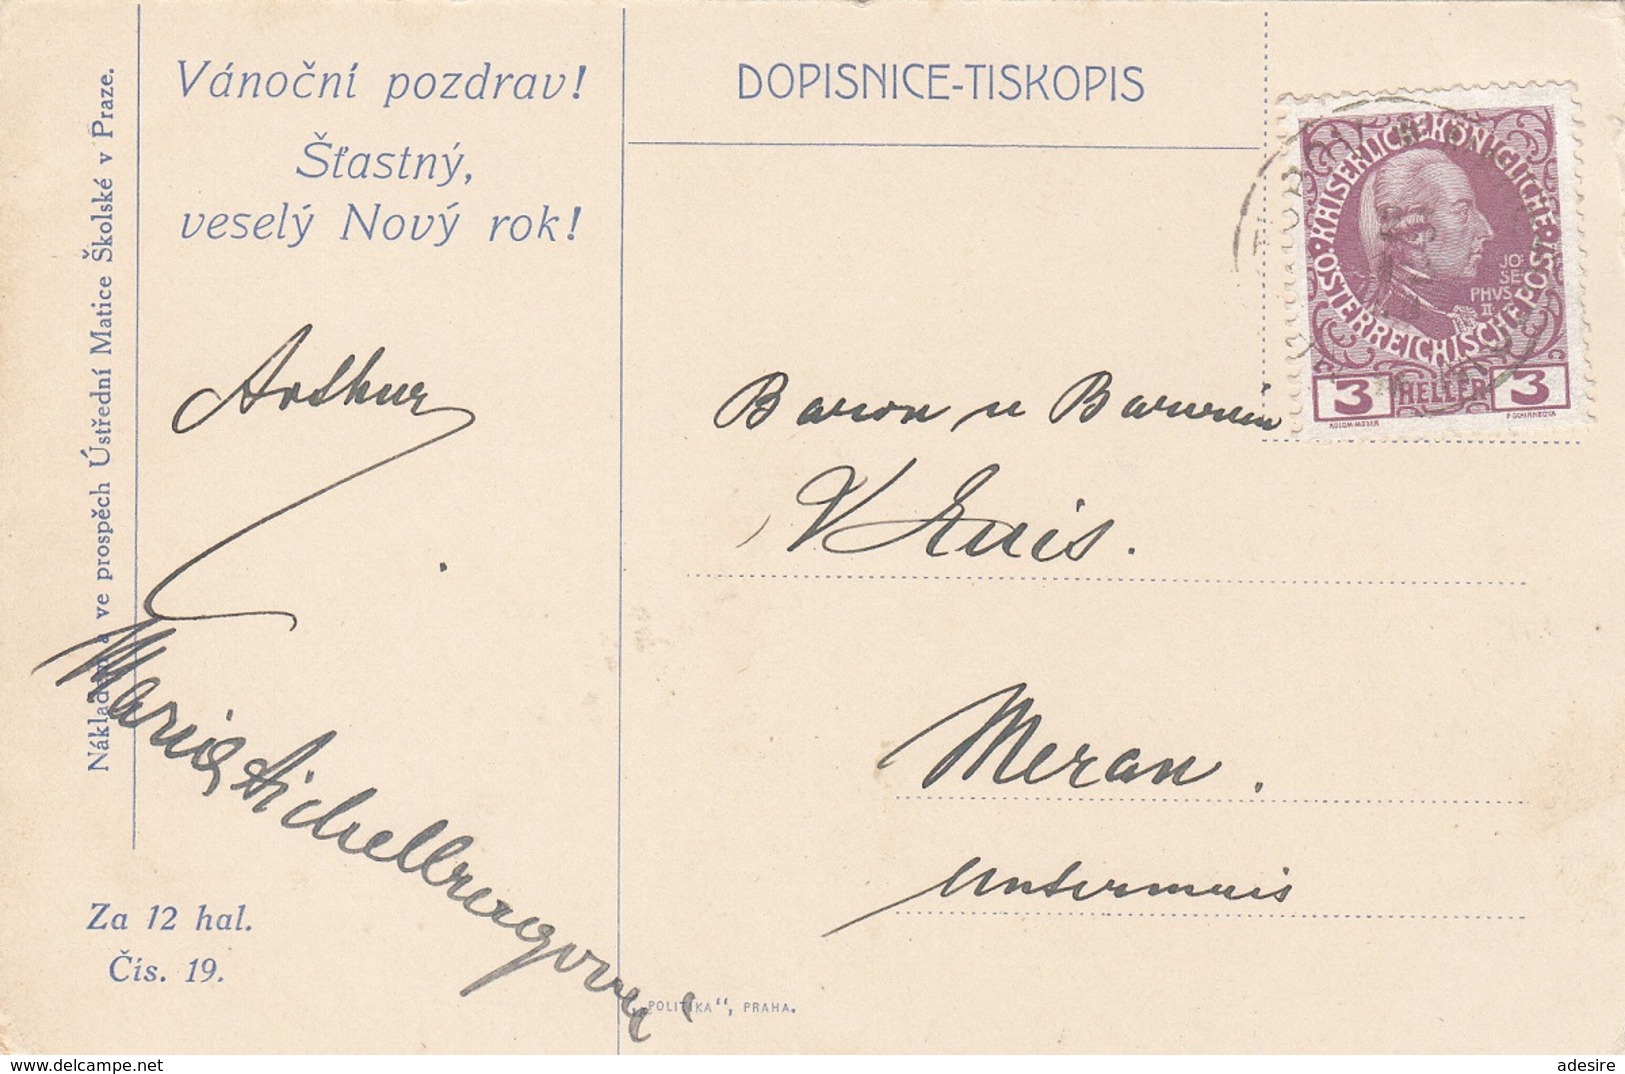 Nákladem a ve prospěch Ústřední Matice Školské v Praze.
Vánoční pozdrav!
Šťastný,
veselý Nový rok!
Arthur
Za 12 hal.
Čís. 19.
DOPISNICE-TISKOPIS
KAISERLICHE KÖNIGLICHE
ÖSTERREICHISCHE POST
JO
SE
PHVS
II
3 HELLER 3
KOLOM·MOSER
Baron u
Meran.
Untermais
„POLITIKA“, PRAHA.
delcampe.net
adesire